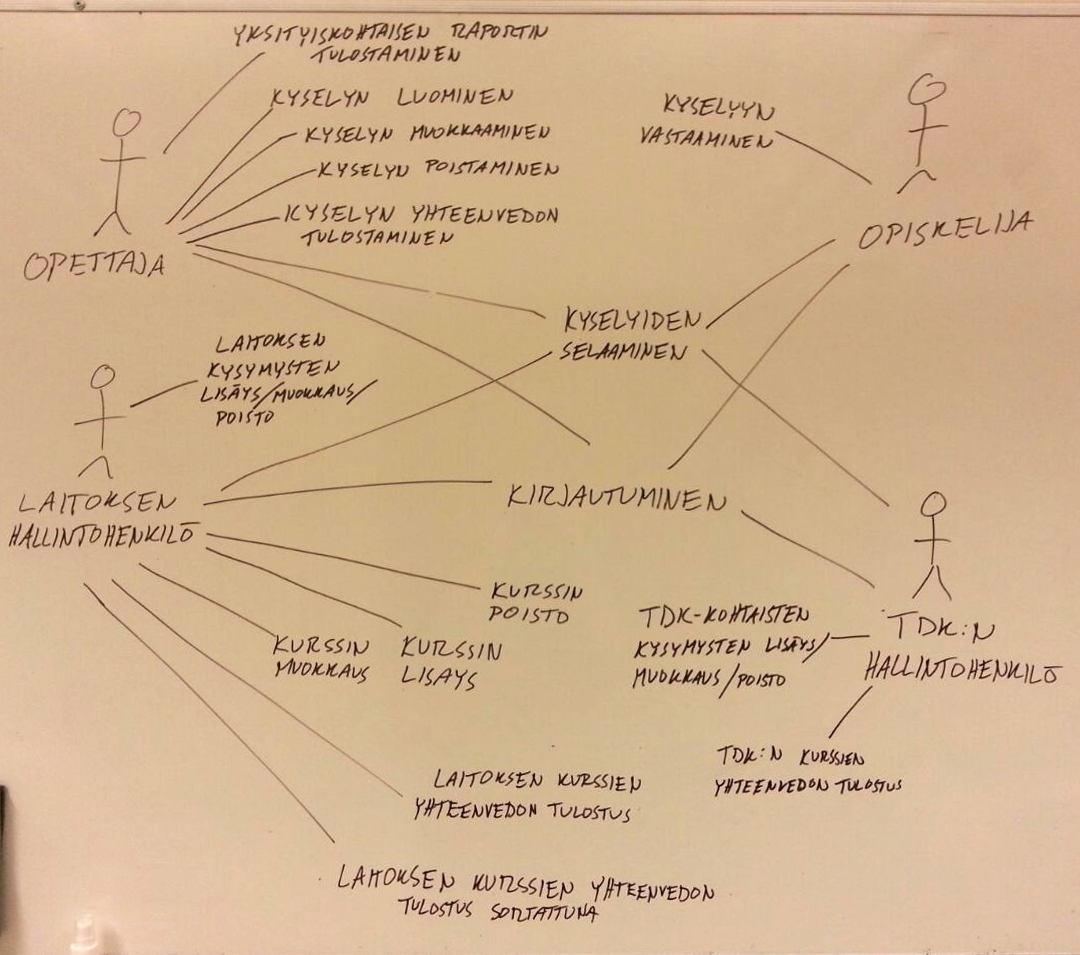 YKSITYISKOHTAISEN RAPORTIN
TULOSTAMINEN
KYSELYN LUOMINEN
KYSELYN MUOKKAAMINEN
KYSELYN POISTAMINEN
KYSELYN YHTEENVEDON
TULOSTAMINEN
OPETTAJA
KYSELYYN
VASTAAMINEN
OPISKELIJA
KYSELYIDEN
SELAAMINEN
LAITOKSEN
KYSYMYSTEN
LISÄYS/MUOKKAUS/
POISTO
LAITOKSEN
HALLINTOHENKILÖ
KIRJAUTUMINEN
KURSSIN
POISTO
KURSSIN
MUOKKAUS
KURSSIN
LISÄYS
TDK-KOHTAISTEN
KYSYMYSTEN LISÄYS/
MUOKKAUS/POISTO
TDK:N
HALLINTOHENKILÖ
TDK:N KURSSIEN
YHTEENVEDON TULOSTUS
LAITOKSEN KURSSIEN
YHTEENVEDON TULOSTUS
LAITOKSEN KURSSIEN YHTEENVEDON
TULOSTUS SORTATTUNA